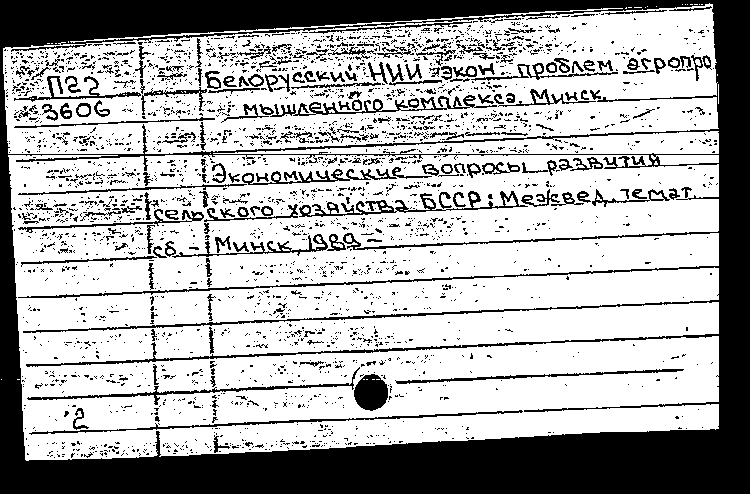 П22 Белорусский НИИ экон. проблем агропро
3606 мышленного комплекса. Минск.
Экономические вопросы развития
сельского хозяйства БССР: Межвед. темат.
сб. – Минск, 1989 –
2